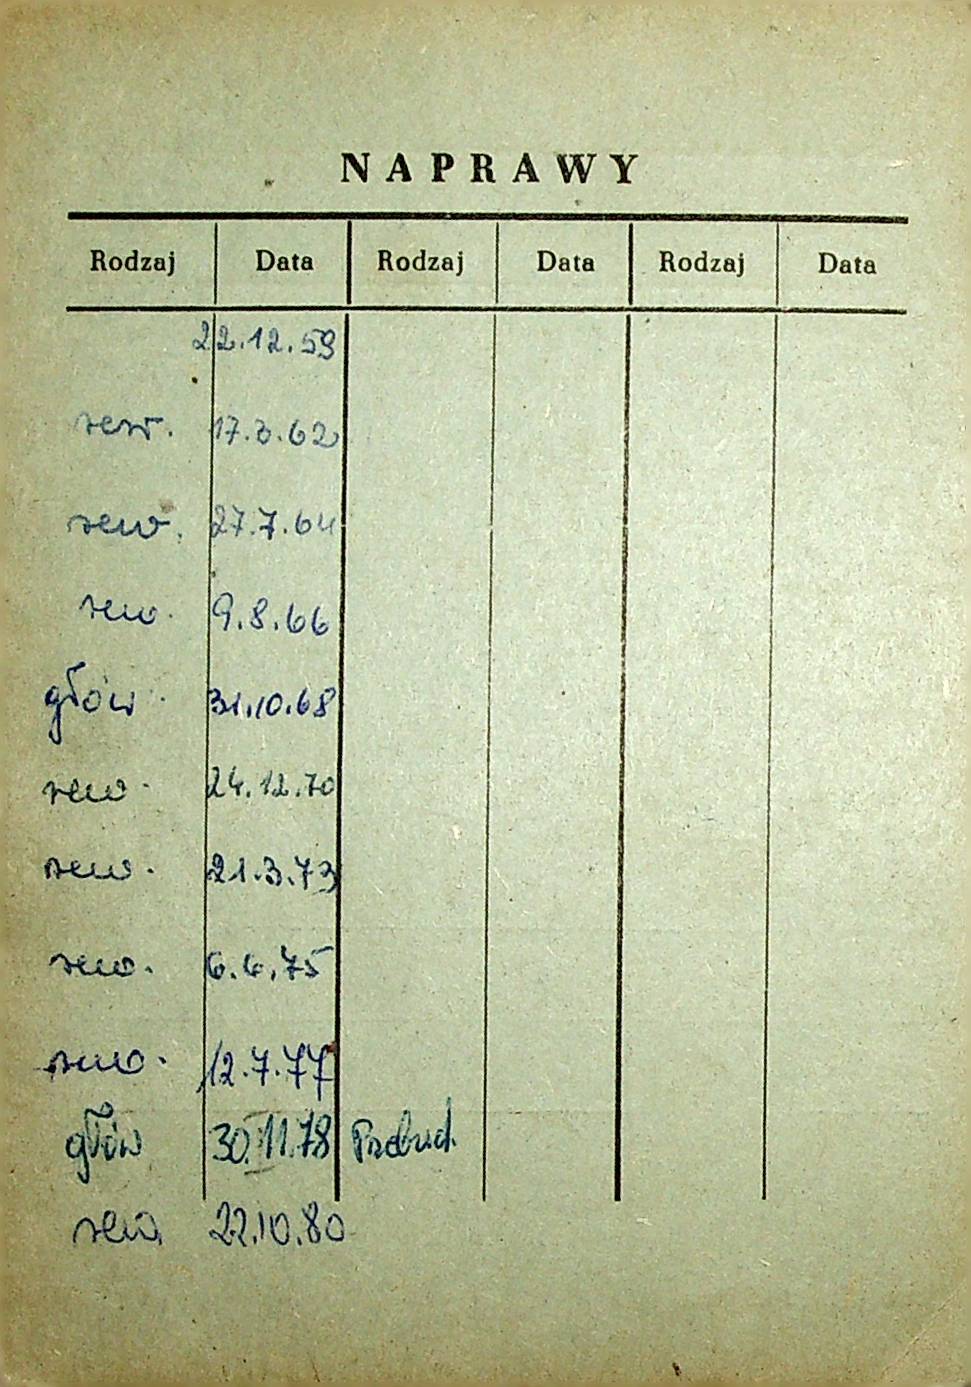 NAPRAWY
Rodzaj Data Rodzaj Data Rodzaj Data
22.12.59
rew. 17.3.62
rew. 27.7.64
rew. 9.8.66
głów. 31.10.68
rew. 24.12.70
rew. 21.3.73
rew. 6.6.75
rew. 12.7.77
głów 30.11.78 Przebud.
rew. 22.10.80